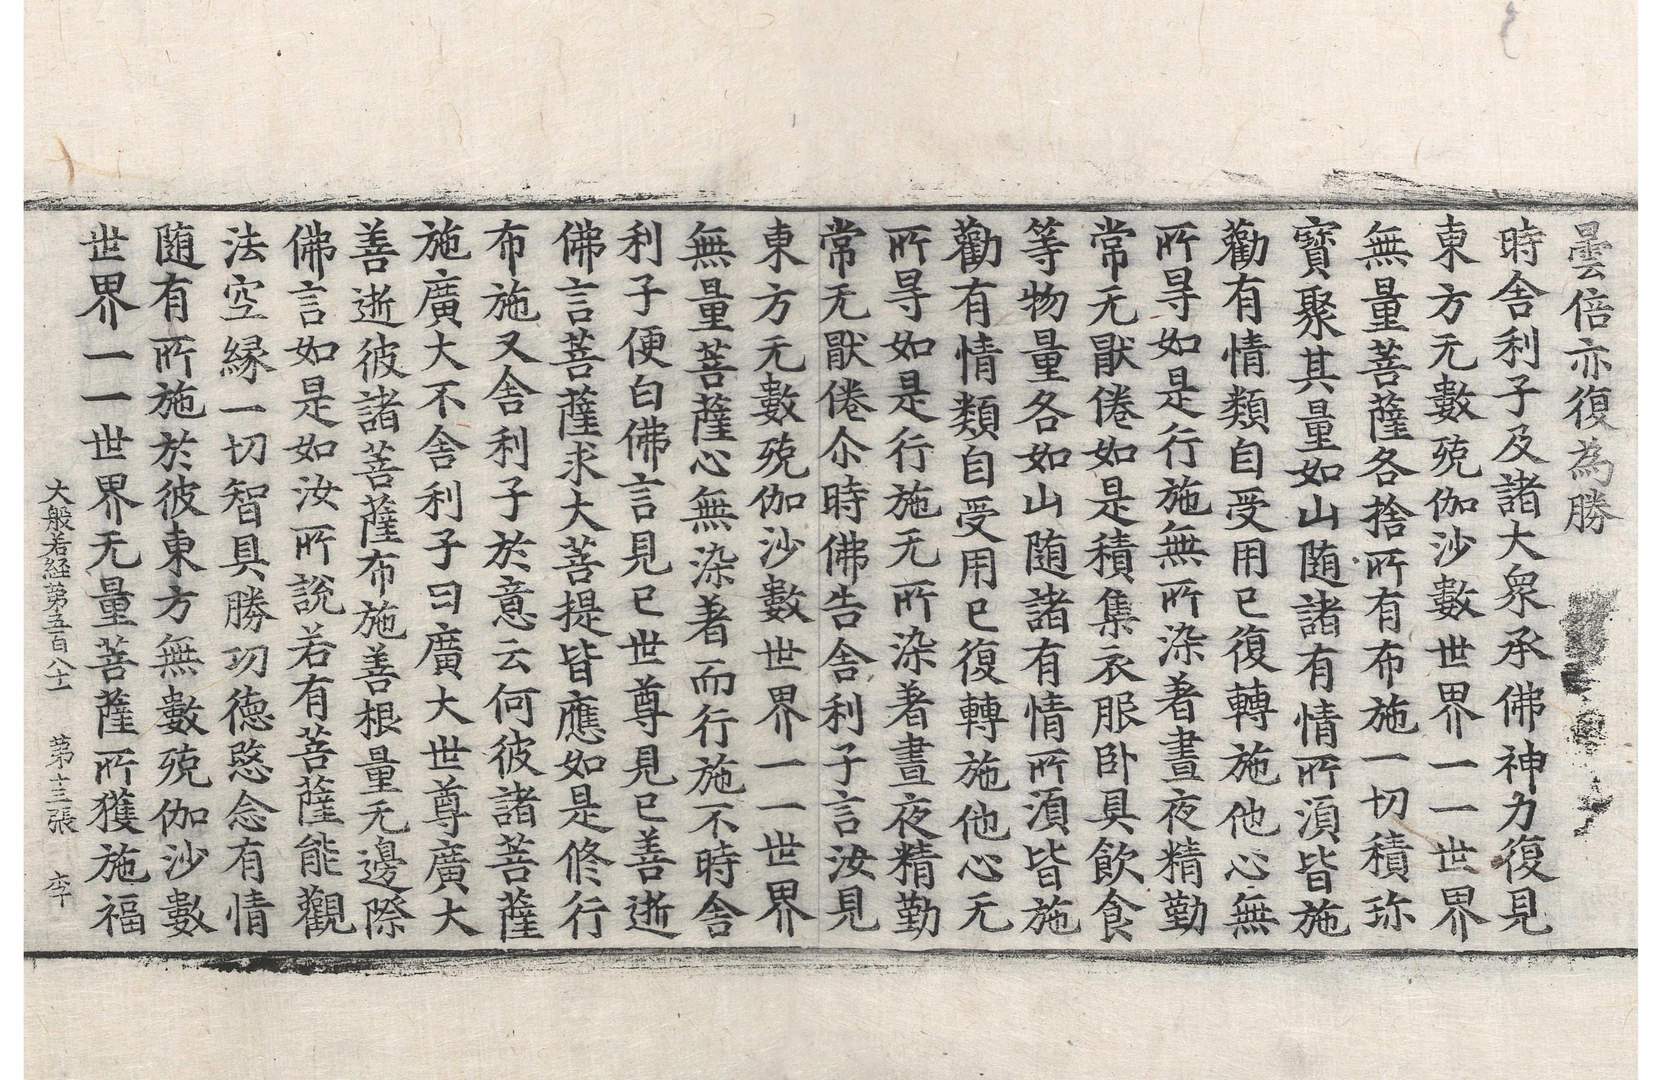 曇倍亦復為勝
時舎利子及諸大衆承佛神力復見
東方无數殑伽沙數世界一一世界
無量菩薩各捨所有布施一切積珎
寳聚其量如山随諸有情所湏皆施
勸有情類自受用已復轉施他心無
所㝵如是行施無所染著晝夜精勤
常无猒倦如是積集衣服卧具飲食
等物量各如山随諸有情所湏皆施
勸有情類自受用已復轉施他心无
所㝵如是行施无所染著晝夜精勤
常无猒倦尒時佛告舎利子言汝見
東方无數殑伽沙數世界一一世界
無量菩薩心無染著而行施不時舎
利子便白佛言見已世尊見已善逝
佛言菩薩求大菩提皆應如是修行
布施又舎利子於意云何彼諸菩薩
施廣大不舎利子曰廣大世尊廣大
善逝彼諸菩薩布施善根量无邊際
佛言如是如汝所說若有菩薩能觀
法空縁一切智具勝功徳愍念有情
随有所施於彼東方無數殑伽沙數
世界一一世界无量菩薩所獲施福
大般若経苐五百八十一 苐十三張 李